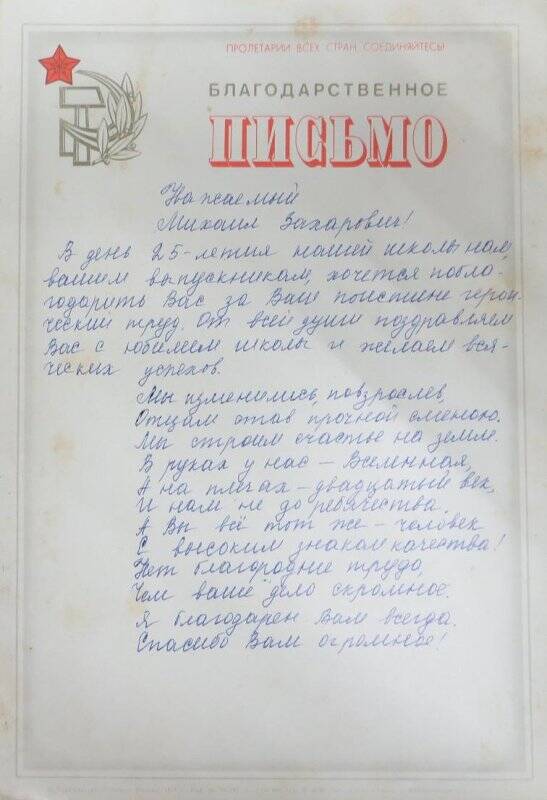 ПРОЛЕТАРИИ ВСЕХ СТРАН, СОЕДИНЯЙТЕСЬ!
БЛАГОДАРСТВЕННОЕ
ПИСЬМО
Уважаемый
Михаил Захарович!
В день 25-летия нашей школы нам,
вашим выпускникам, хочется побла-
годарить Вас за Ваш поистине герои-
ческий труд. От всей души поздравляем
Вас с юбилеем школы и желаем вся-
ческих успехов.
Мы изменились, повзрослев,
Отцам став прочной сменою.
Мы строим счастье на земле.
В руках у нас – Вселенная,
А на плечах – двадцатый век,
И нам не до ребячества.
А Вы всё тот же – человек
С высоким знаком качества!
Нет благородние труда,
Чем ваше дело скромное.
Я благодарен Вам всегда.
Спасибо Вам огромное!